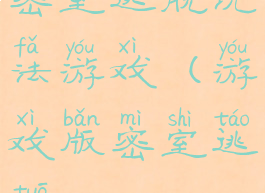 密室逃脱
fǎ yóu xì yóu
法游戏（游
xì bǎn mì shì táo
戏版密室逃